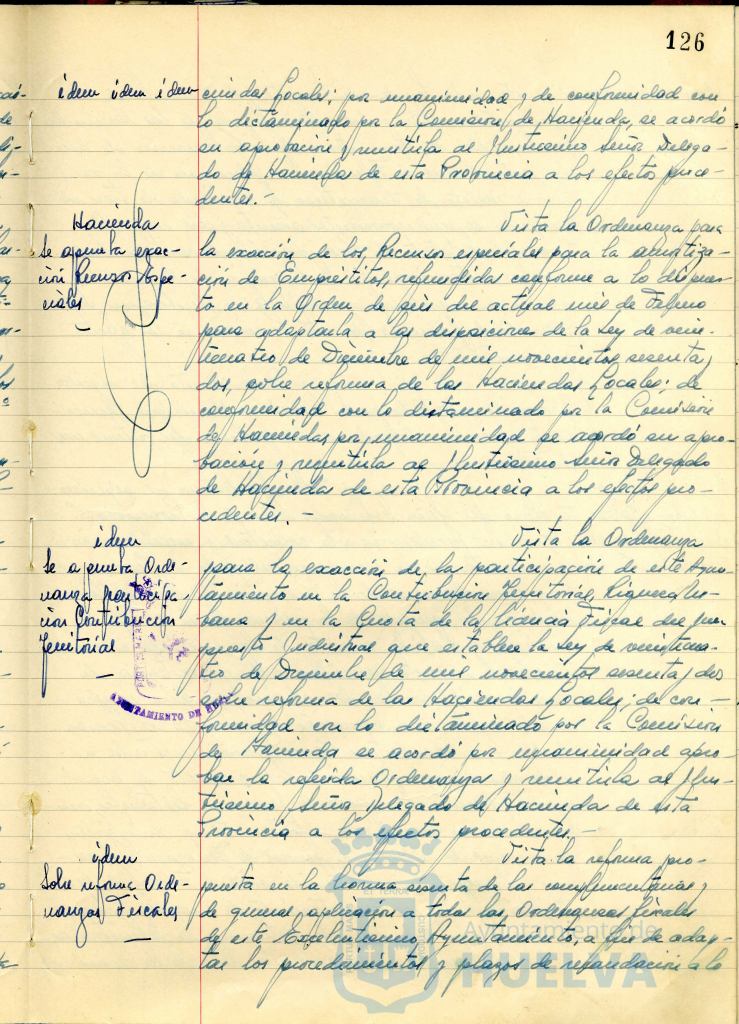 126
idem idem idem
ciendas Locales; por unanimidad y de conformidad con
lo dictaminado por la Comisión de Hacienda, se acordó
su aprobación y remitirla al Ilustrísimo Señor Delega-
do de Hacienda de esta Provincia a los efectos proce-
dentes.-
Hacienda
Se aprueba exac-
ción Recursos Espe-
ciales
Vista la Ordenanza para
la exacción de los Recursos especiales para la amortiza-
ción de Empréstitos, refundida conforme a lo dispues-
to en la Orden de seis del actual mes de Febrero
para adaptarla a las disposiciones de la Ley de vein-
ticuatro de Diciembre de mil novecientos sesenta y
dos, sobre reforma de las Haciendas Locales; de
conformidad con lo dictaminado por la Comisión
de Hacienda, por unanimidad se acordó su apro-
bación y remitirla al Ilustrísimo Señor Delegado
de Hacienda de esta Provincia a los efectos pro-
cedentes.-
idem
Se aprueba Orde-
nanza participa-
ción Contribución
Territorial
Vista la Ordenanza
para la exacción de la participación de este Ayun-
tamiento en la Contribución Territorial, Riqueza Ur-
bana y en la Cuota de la Licencia Fiscal del Im-
puesto Industrial que establece la Ley de veinticua-
tro de Diciembre de mil novecientos sesenta y dos
sobre reforma de las Haciendas Locales; de con-
formidad con lo dictaminado por la Comisión
de Hacienda se acordó por unanimidad apro-
bar la referida Ordenanza y remitirla al Ilus-
trísimo Señor Delegado de Hacienda de esta
Provincia a los efectos procedentes.-
AYUNTAMIENTO DE HUELVA
idem
Sobre reforma Orde-
nanzas Fiscales
Vista la reforma pro-
puesta en la norma sesenta de las complementarias y
de general aplicación a todas las Ordenanzas fiscales
de este Excelentísimo Ayuntamiento, a fin de adap-
tar los procedimientos y plazos de recaudación a lo
Ayuntamiento de
HUELVA